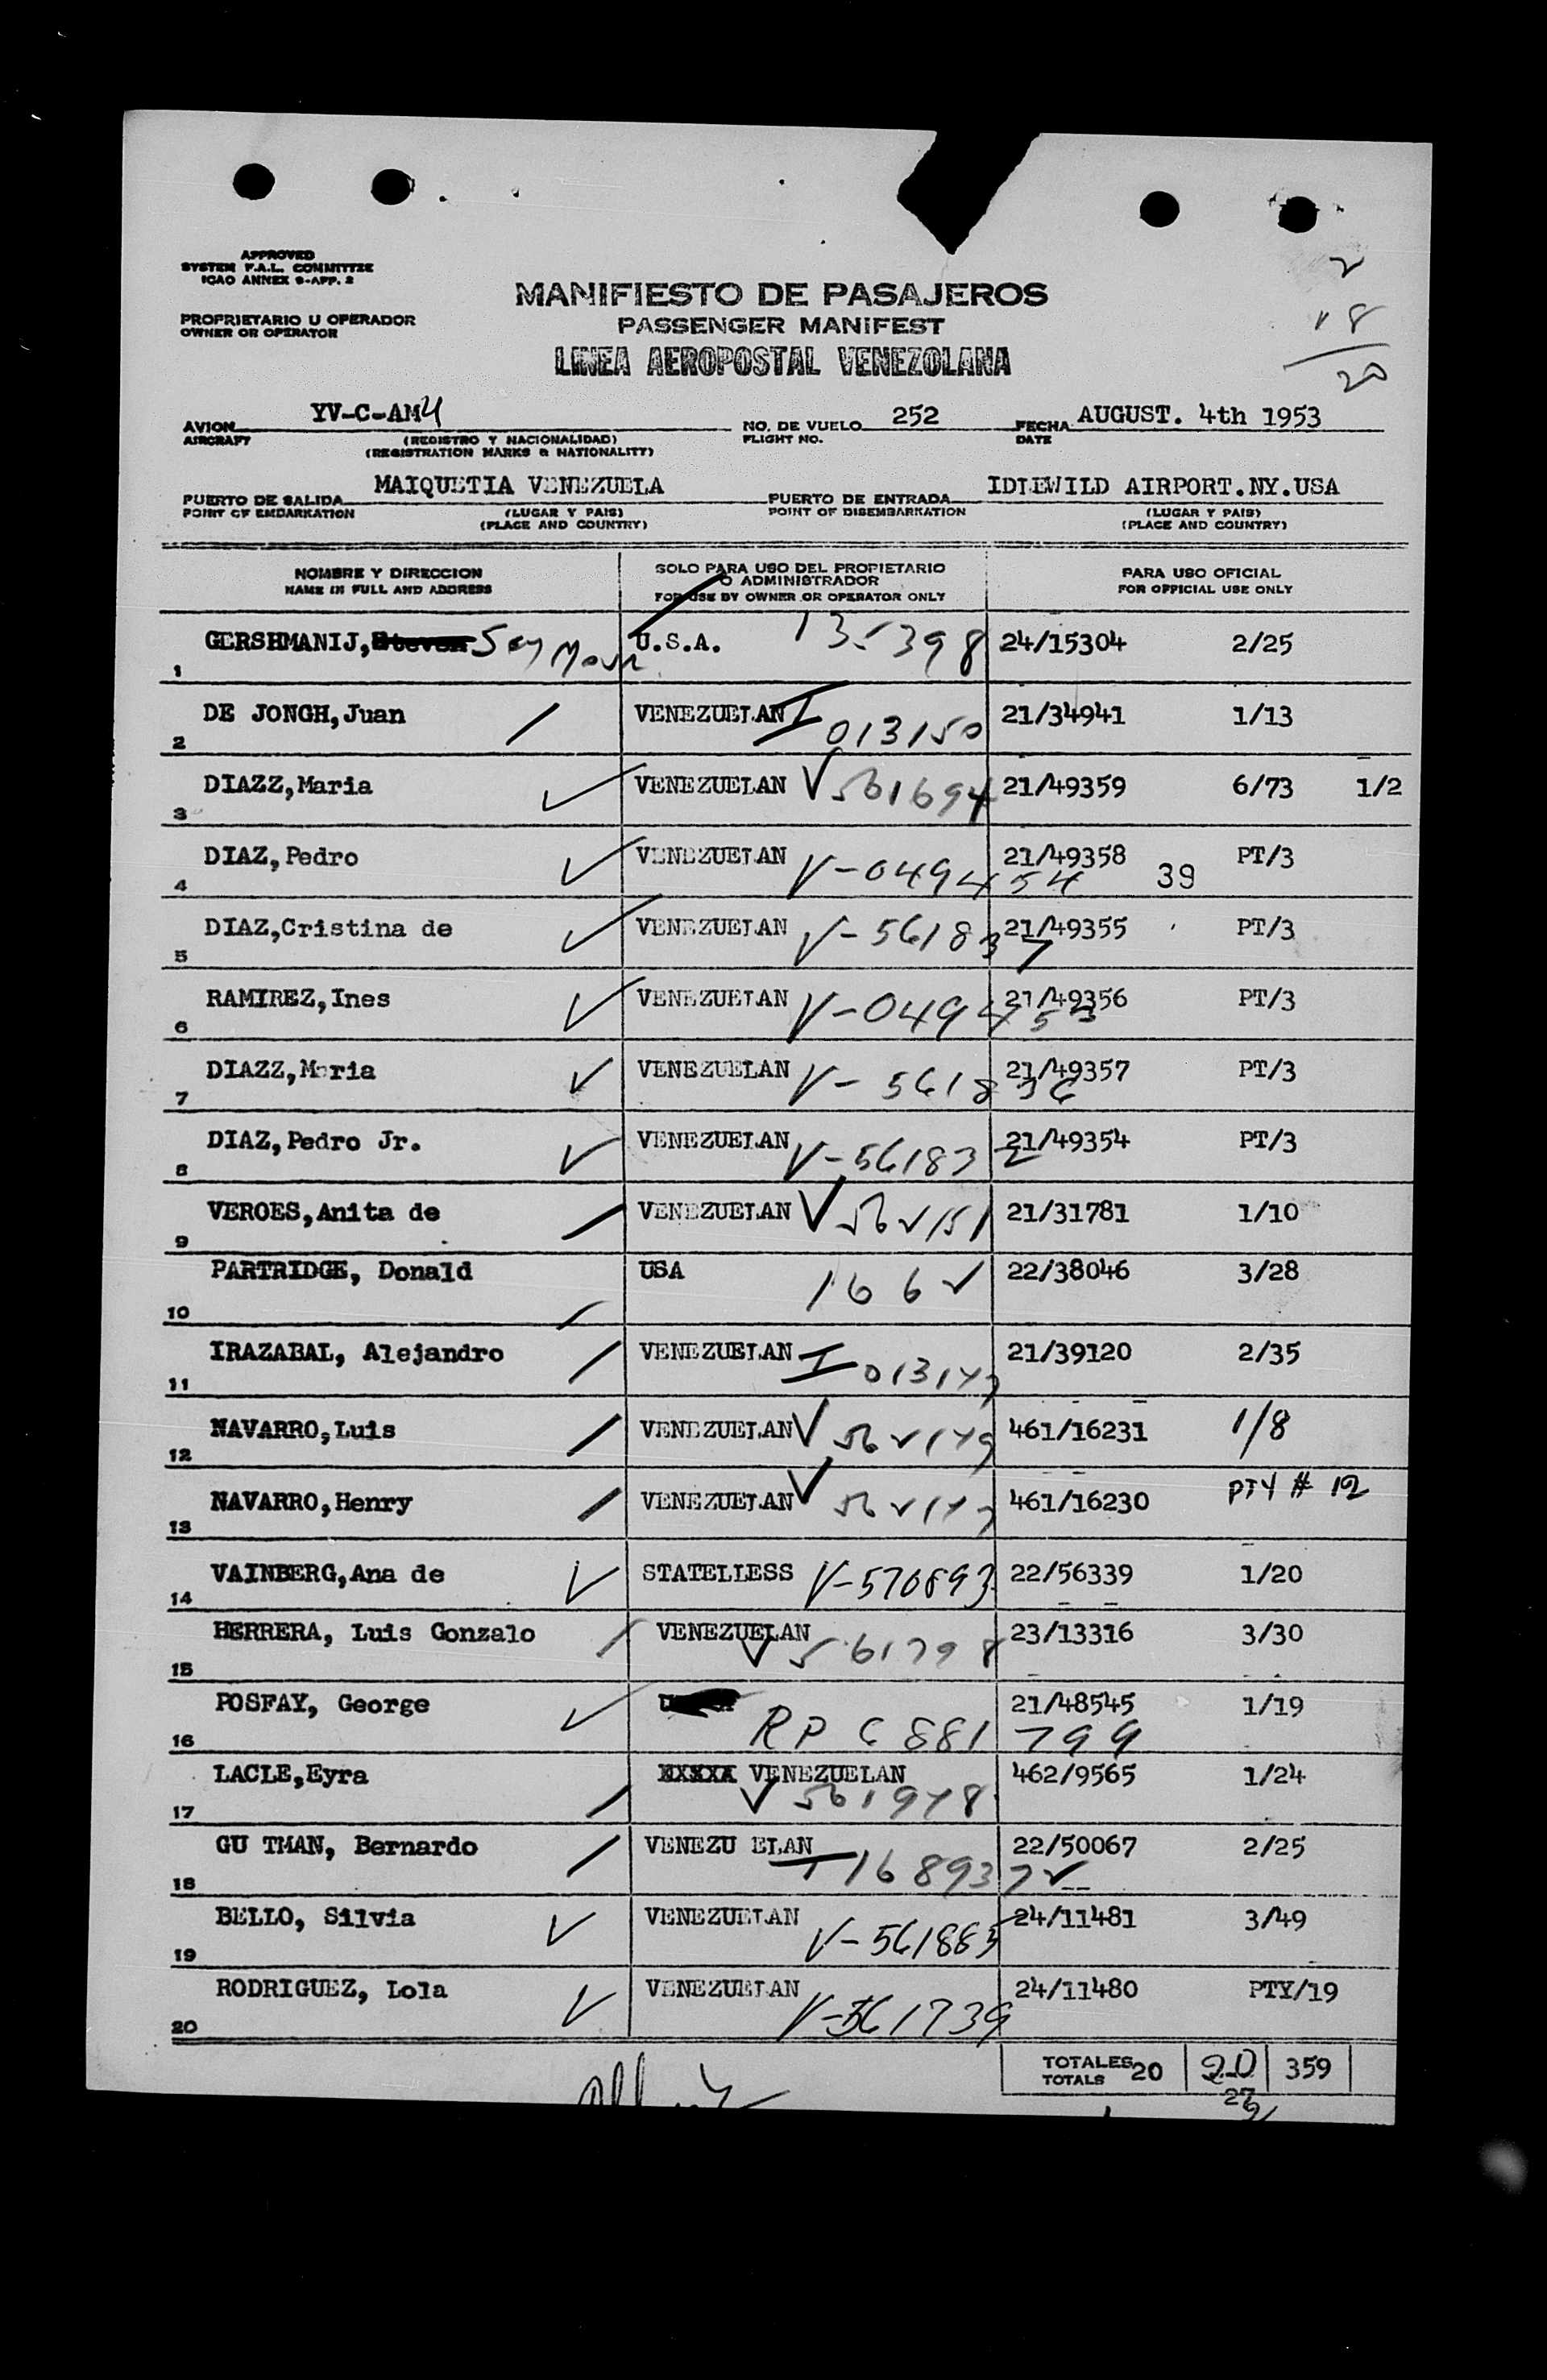 APPROVED
SYSTEM F.A.L. COMMITTEE
ICAO ANNEX 9-APP. 2
PROPRIETARIO U OPERADOR
OWNER OR OPERATOR
MANIFIESTO DE PASAJEROS
PASSENGER MANIFEST
LINEA AEROPOSTAL VENEZOLANA
2
18
20
AVION YV-C-AM4 NO. DE VUELO 252 FECHA AUGUST. 4th 1953
AIRCRAFT (REGISTRO Y NACIONALIDAD) FLIGHT NO. DATE
(REGISTRATION MARKS & NATIONALITY)
PUERTO DE SALIDA MAIQUETIA VENEZUELA PUERTO DE ENTRADA IDLEWILD AIRPORT.NY.USA
POINT OF EMBARKATION (LUGAR Y PAIS) POINT OF DISEMBARKATION (LUGAR Y PAIS)
(PLACE AND COUNTRY) (PLACE AND COUNTRY)
NOMBRE Y DIRECCION SOLO PARA USO DEL PROPIETARIO PARA USO OFICIAL
NAME IN FULL AND ADDRESS O ADMINISTRADOR FOR OFFICIAL USE ONLY
FOR USE BY OWNER OR OPERATOR ONLY
1 GERSHMANIJ, Steven Seymour U.S.A. 135398 24/15304 2/25
2 DE JONGH,Juan VENEZUELAN I 013150 21/34941 1/13
3 DIAZZ,Maria VENEZUELAN V 561694 21/49359 6/73 1/2
4 DIAZ,Pedro VENEZUELAN V-049454 21/49358 39 PT/3
5 DIAZ,Cristina de VENEZUELAN V-561837 21/49355 PT/3
6 RAMIREZ,Ines VENEZUELAN V-049453 21/49356 PT/3
7 DIAZZ,Maria VENEZUELAN V-561836 21/49357 PT/3
8 DIAZ,Pedro Jr. VENEZUELAN V-561832 21/49354 PT/3
9 VEROES,Anita de VENEZUELAN V 562151 21/31781 1/10
10 PARTRIDGE, Donald USA 1662 22/38046 3/28
11 IRAZABAL, Alejandro VENEZUELAN I 013147 21/39120 2/35
12 NAVARRO,Luis VENEZUELAN V 562149 461/16231 1/8
13 NAVARRO,Henry VENEZUELAN V 562147 461/16230 PTY # 12
14 VAINBERG,Ana de STATELLESS V-570893 22/56339 1/20
15 HERRERA, Luis Gonzalo VENEZUELAN V 561798 23/13316 3/30
16 POSFAY, George RP 6881799 21/48545 1/19
17 LACLE,Eyra XXXXX VENEZUELAN V 561948 462/9565 1/24
18 GU TMAN, Bernardo VENEZU ELAN I 1689372 22/50067 2/25
19 BELLO, Silvia VENEZUELAN V-561885 24/11481 3/49
20 RODRIGUEZ, Lola VENEZUELAN V-561739 24/11480 PTY/19
TOTALES 20 20 359
TOTALS